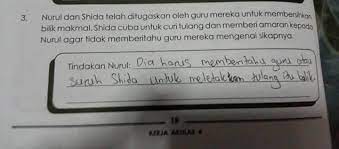 3. Nurul dan Shida telah ditugaskan oleh guru mereka untuk membersihkan
bilik makmal. Shida cuba untuk curi tulang dan memberi amaran kepada
Nurul agar tidak memberitahu guru mereka mengenai sikapnya.
Tindakan Nurul: Dia harus memberitahu guru atau
suruh Shida untuk meletakkan tulang itu balik.
18
KERJA AMALAN 4